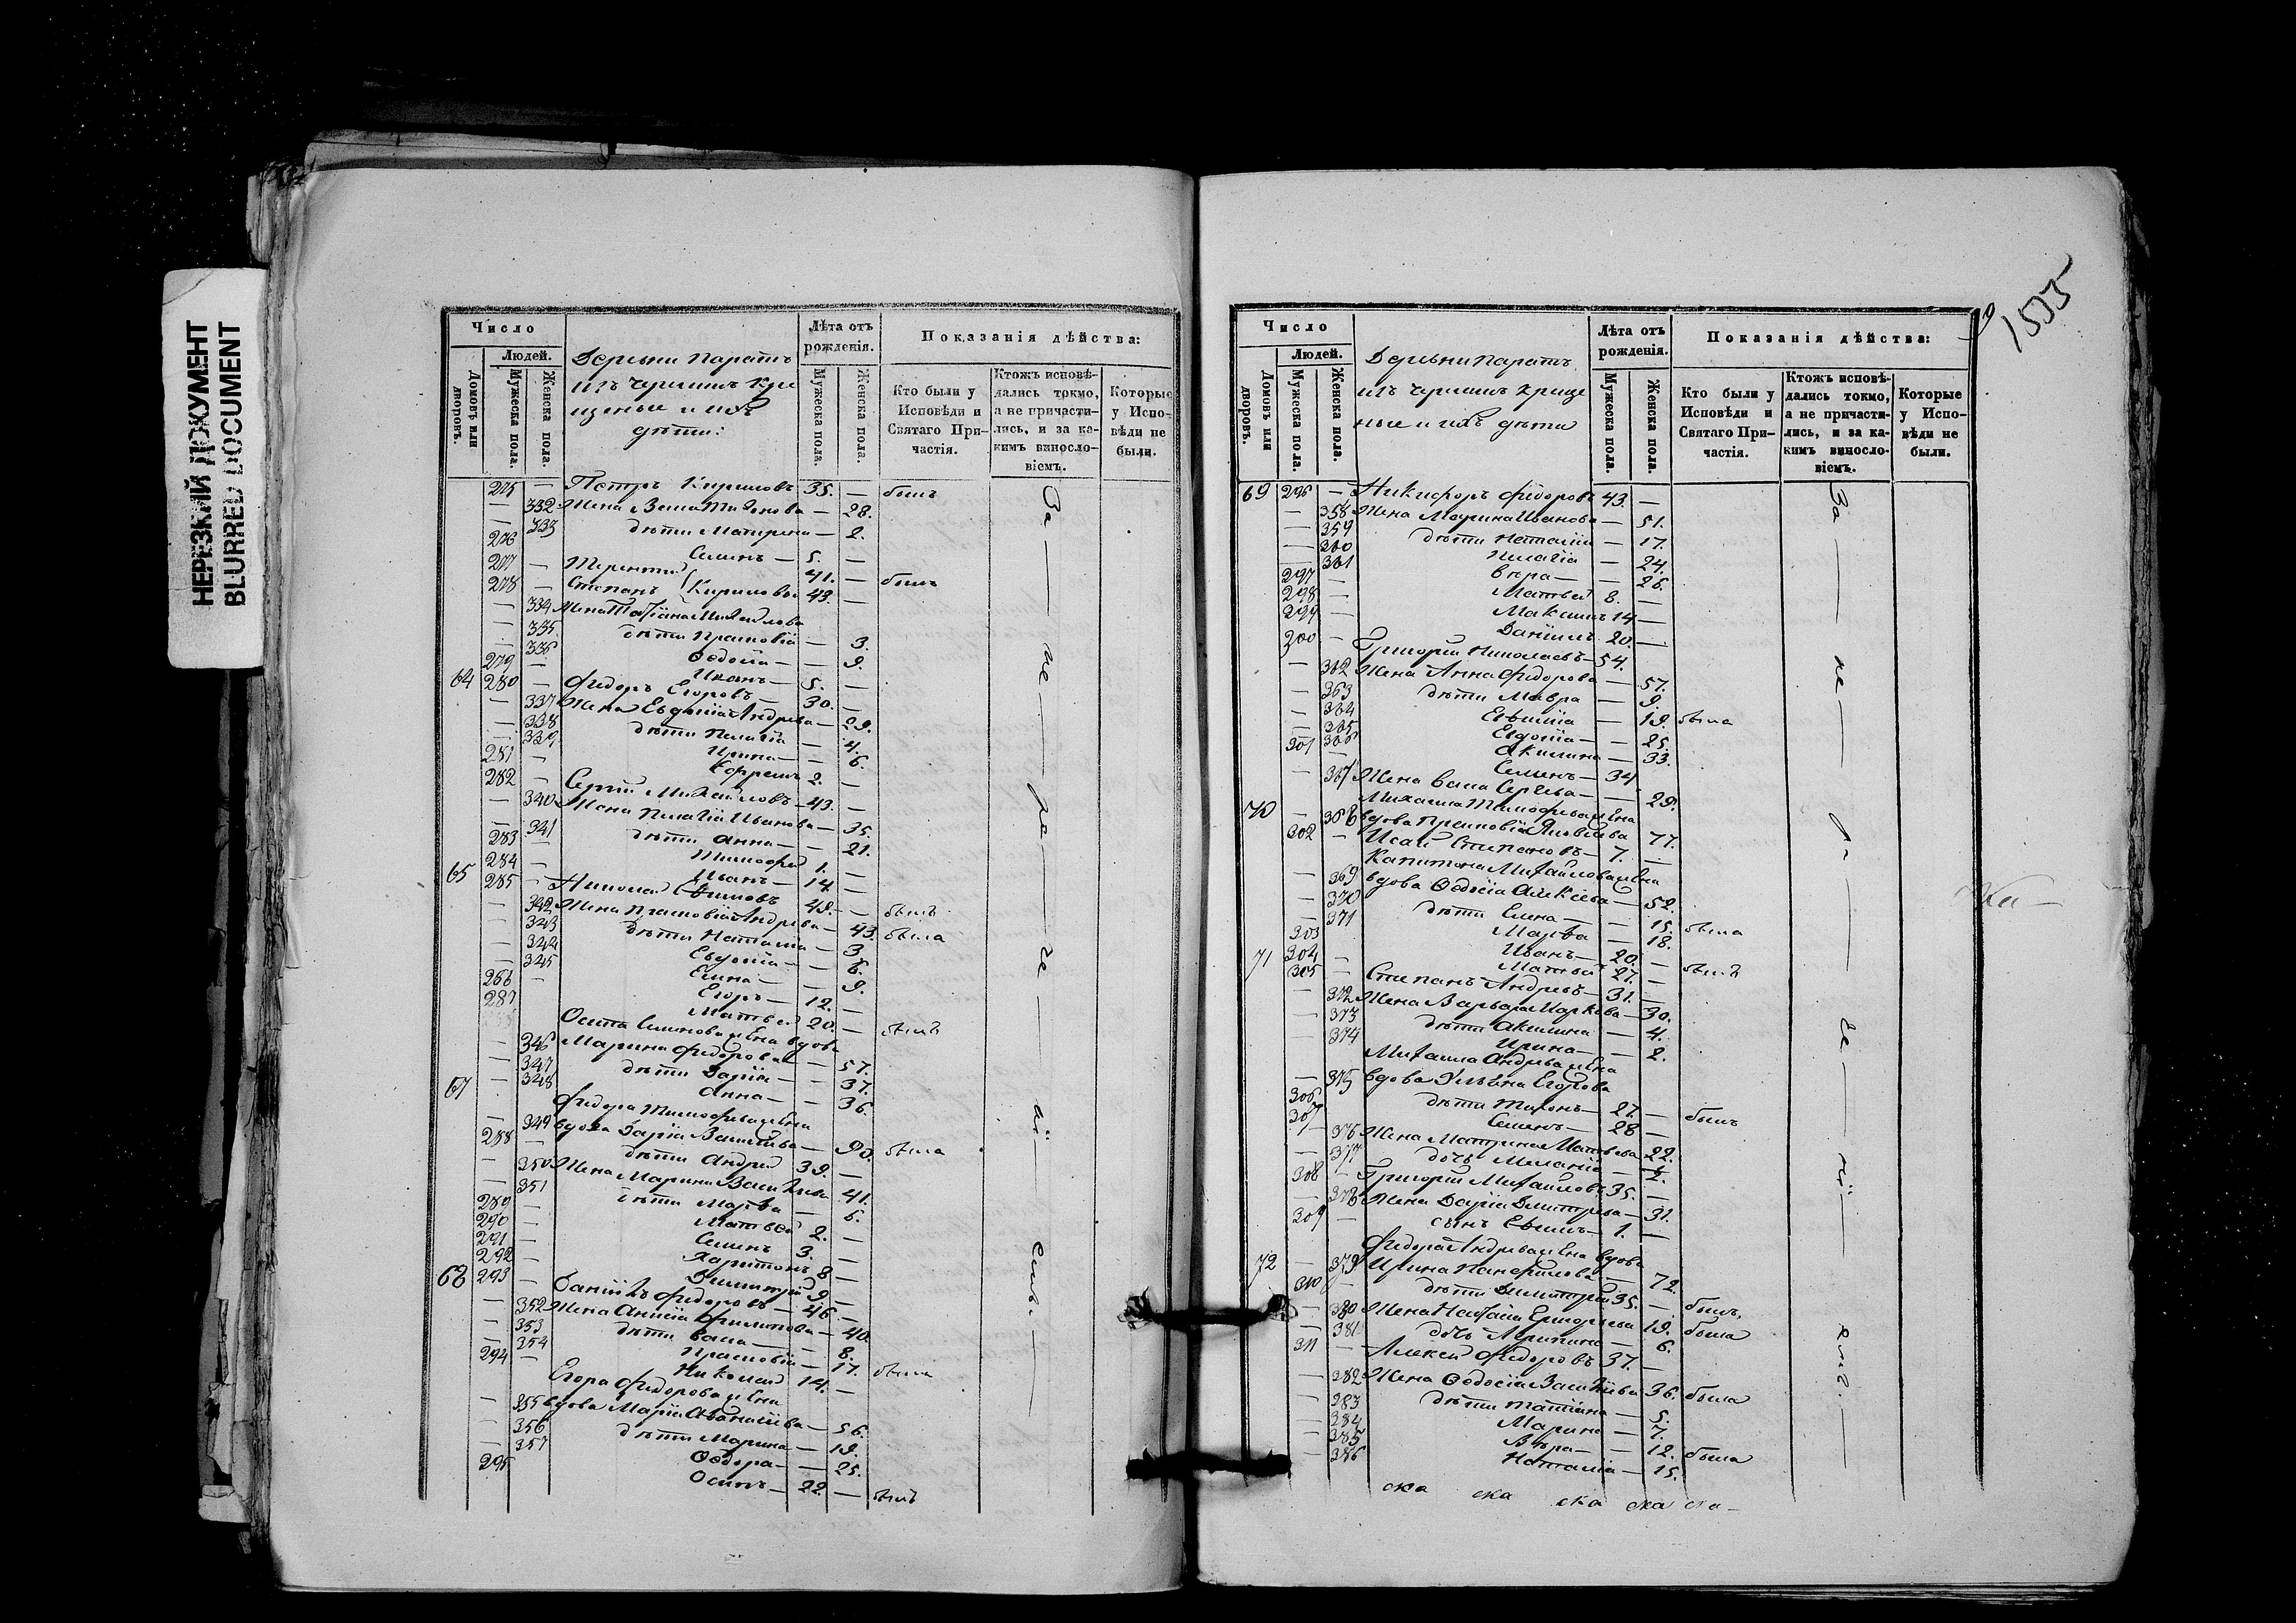 НЕРЕЗКИЙ ДОКУМЕНТ
BLURRED DOCUMENT
Число
Людей.
Домовъ или дворовъ.
Мужеска пола.
Женска пола.
Деревни Паратъ
изъ черемисъ кре
щеные и ихъ
дѣти:
Лѣта отъ рожденія.
Мужеска пола.
Женска пола.
Показанія дѣйства:
Кто были у Исповѣди и Святаго Причастія.
Ктожъ исповѣдались токмо, а не причастились, и за какимъ винословіемъ.
Которые у Исповѣди не были.
275 — Петръ Кириловъ 35. — былъ
— 332 Жена — 28.
— 333 дѣти Матрена — 2.
276 Семенъ — 5. —
277 — Терентій 41. — былъ
278 — Степанъ Кириловы 43. —
— 334 Жена Татіана Михайлова
— 335 дѣти Прасковія — 3.
— 336 Ѳедосія — — 9.
279 — Иванъ — 5. —
64 280 — Федоръ Егоровъ — 30. —
— 337 Жена Евдокія Андреева — 29.
— 338 дѣти Пелагія — 4.
— 339 Ирина — — 6.
281 — Ефремъ 2. —
282 — Сергій Михайловъ — 43. —
— 340 Жена Пелагія Иванова — 35.
— 341 дѣти Анна — — 21.
283 Тимофей 1. —
284 — Иванъ — 14. —
65 285 — Николай Ефимовъ 49. — былъ
— 342 Жена Прасковія Андреева — 43. была
— 343 дѣти Наталія — 3
— 344 Евдокія — — 6.
— 345 Елена — — 9.
286 — Егоръ — 12. —
287 Матвей 20. — былъ
Осипа Семенова жена вдова
— 346 Марина Федорова — 57.
— 347 дѣти Дарія — — 37.
— 348 Анна — — 36.
67 Федора Тимофеева жена
— 349 вдова Дарія Васильева — 90. была
288 — дѣти Андрей 39. —
— 350 Жена Марина Васильева 41.
— 351 дѣти Марѳа — 6.
289 — Матвей 2. —
290 — Семенъ 3. —
291 — Харитонъ 8 —
292 — Димитрій 9 —
68 293 — Даніилъ Федоровъ — 46 —
— 352 Жена Анисія Филипова — 40.
— 353 дѣти — 8.
— 354 Прасковія — 17. была
294 — Николай 14. —
Егора Федорова жена
— 355 вдова Марія Аѳанасіева — 56.
— 356 дѣти Марина — 19.
— 357 Ѳедора — — 25.
295 Осипъ — 22. — былъ
За не ра че ні емъ.
1555
9
Число
Людей.
Домовъ или дворовъ.
Мужеска пола.
Женска пола.
Деревни Паратъ
изъ черемисъ креще
ные и ихъ дѣти
Лѣта отъ рожденія.
Мужеска пола.
Женска пола.
Показанія дѣйства:
Кто были у Исповѣди и Святаго Причастія.
Ктожъ исповѣдались токмо, а не причастились, и за какимъ винословіемъ.
Которые у Исповѣди не были.
69 296 — Никифоръ Федоровъ 43. —
— 358 Жена Марина Иванова — 51.
— 359 дѣти Наталія — 17.
— 360 Пелагія — 24.
— 361 Вѣра — — 26.
297 — Матвей 8. —
298 — Максимъ 14 —
299 — Даніилъ 20. —
300 — Григорій Николаевъ — 54. —
— 362 Жена Анна Федорова — 57.
— 363 дѣти Мавра — 9.
— 364 Евѳимія — 19. была
— 365 Евдокія — — 25.
— 366 Акилина — 33.
301 — Семенъ — 34
— 367 Жена Сергеева — — 29.
70 Михаила Тимофеева жена
— 368 вдова Прасковія Яковлева 77.
302 — Исай Степановъ — 7. —
Капитона Михайлова жена
— 369 вдова Ѳедосія Алексеева — 52.
— 370 дѣти Елена — — 15. была
— 371 Марѳа — 18.
303 Иванъ — 20. —
304 — Матвей 27. — былъ
71 305 — Степанъ Андреевъ — 31. —
— 372 Жена Варвара Маркова — 30.
— 373 дѣти Акилина — 4.
— 374 Ирина — — 2.
Михаила Андреева жена
— 375 вдова Ульяна Егорова
306 дѣти Тихонъ — 27. — былъ
307 Семенъ — 28 —
— 376 Жена Матрена Матвеева 22.
— 377 дочь Меланія —
308 — Григорій Михайловъ 35. —
— 378 Жена Дарія Димитріева — 31.
309 — сынъ Евѳимъ — 1. —
Федора Андреева жена вдова
72 — 379 Ирина Панфилова — 72.
310 — дѣти Димитрій 35. — былъ,
— 380 Жена Григорьева 19. была
— 381 дочь Агрипина — 6.
311 — — Алексей Федоровъ 37. —
— 382 Жена Ѳедосія Васильева 36. была
— 383 дѣти Татіана — 5.
— 384 Марина — 7.
— 385 Вѣра — — 12. была
— 386 Наталія — 15.
За не ра че ні емъ. —
ска ска ска ска ска —